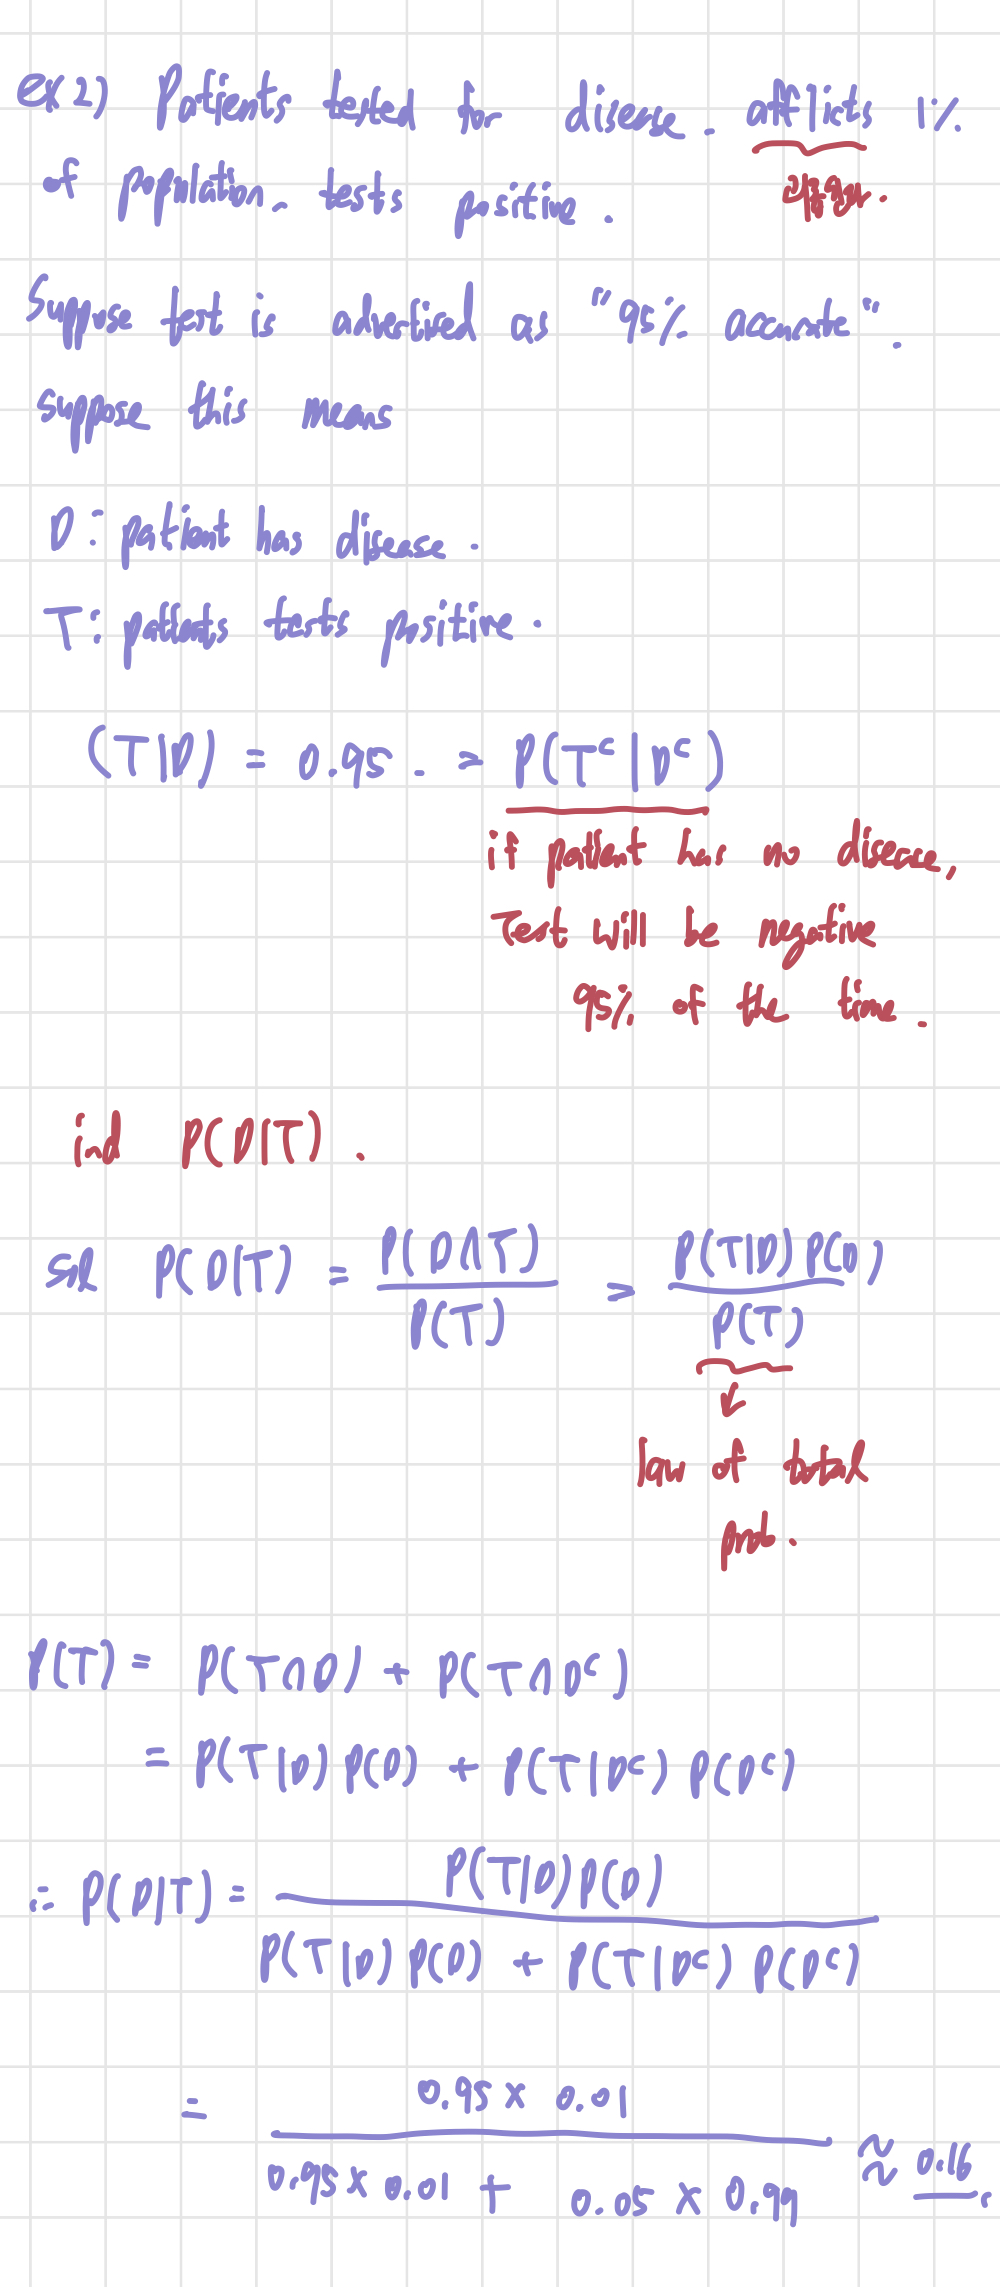 ex 2) Patients tested for disease. afflicts 1%
of population. tests positive.
Suppose test is advertised as "95% accurate".
suppose this means
D: patient has disease.
T: patients tests positive.
(T|D) = 0.95. = P(Tᶜ|Dᶜ)
if patient has no disease,
Test will be negative
95% of the time.
ind P(D|T).
sol P(D|T) = P(D∩T) / P(T) = P(T|D)P(D) / P(T)
↓
law of total
prob.
P(T) = P(T∩D) + P(T∩Dᶜ)
= P(T|D)P(D) + P(T|Dᶜ) P(Dᶜ)
∴ P(D|T) = P(T|D)P(D) / P(T|D)P(D) + P(T|Dᶜ) P(Dᶜ)
= 0.95 × 0.01 / 0.95 × 0.01 + 0.05 × 0.99 ≈ 0.16.